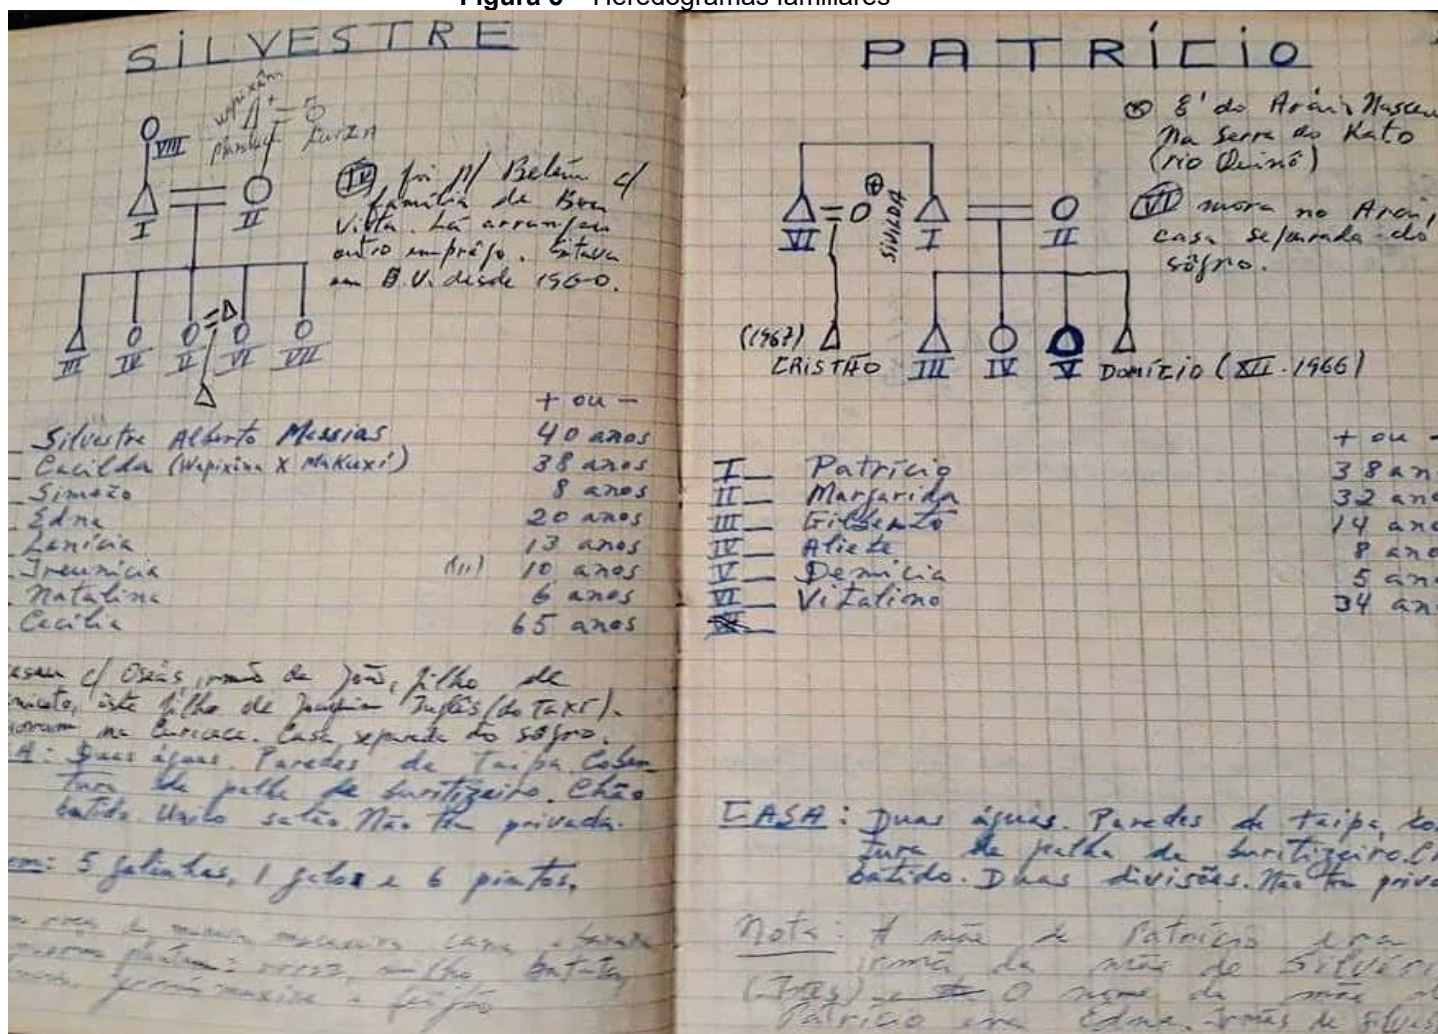 Figura 3 – Heredogramas familiares
SILVESTRE
wapixân
+ –
Luiza
VIII
I
II
(IV) foi p/ Belém c/
família de Boa
Vista. Lá arranjou
outro emprêgo. Estava
em B.V. desde 1960.
III IV II VI VII
+ ou –
Silvestre Alberto Messias 40 anos
Cacilda (Wapixina X Makuxi) 38 anos
Simeão 8 anos
Edna 20 anos
Lenícia 13 anos
Ireunícia 10 anos
Natalina 6 anos
Cecília 65 anos
c/ Oséas, irmão de João, filho de
êste filho de Joaquim Inglês (do Taxi).
na Curicaca. Casa separada do sôgro.
A: Duas águas. Paredes de Taipa. Cober
tura de palha de buritizeiro. Chão
batido. Único salão. Não tem privada.
5 galinhas, 1 galo e 6 pintos.
cana
milho, batata,
e feijão
PATRÍCIO
⊕ É do Arai. Nasceu
na Serra do Kato
(rio Quinô)
(VI) mora no Arai,
casa separada do
sôgro.
VI = ⊕ SIVILDA I II
(1967) CRISTÃO III IV V DOMÍCIO (XII.1966)
+ ou –
I Patrício 38 an
II Margarida 32 an
III Gilberto 14 an
IV Aliete 8 an
V Demicia 5 an
VI Vitalino 34 an
CASA: Duas águas. Paredes de taipa, co
tura de palha de buritizeiro. C
batido. Duas divisões. Não tem priva
Nota: A mãe de Patrício era
irmã da mãe de Silvéri
(Inês) e O nome da mãe
Patrício era Edna. Irmãs de